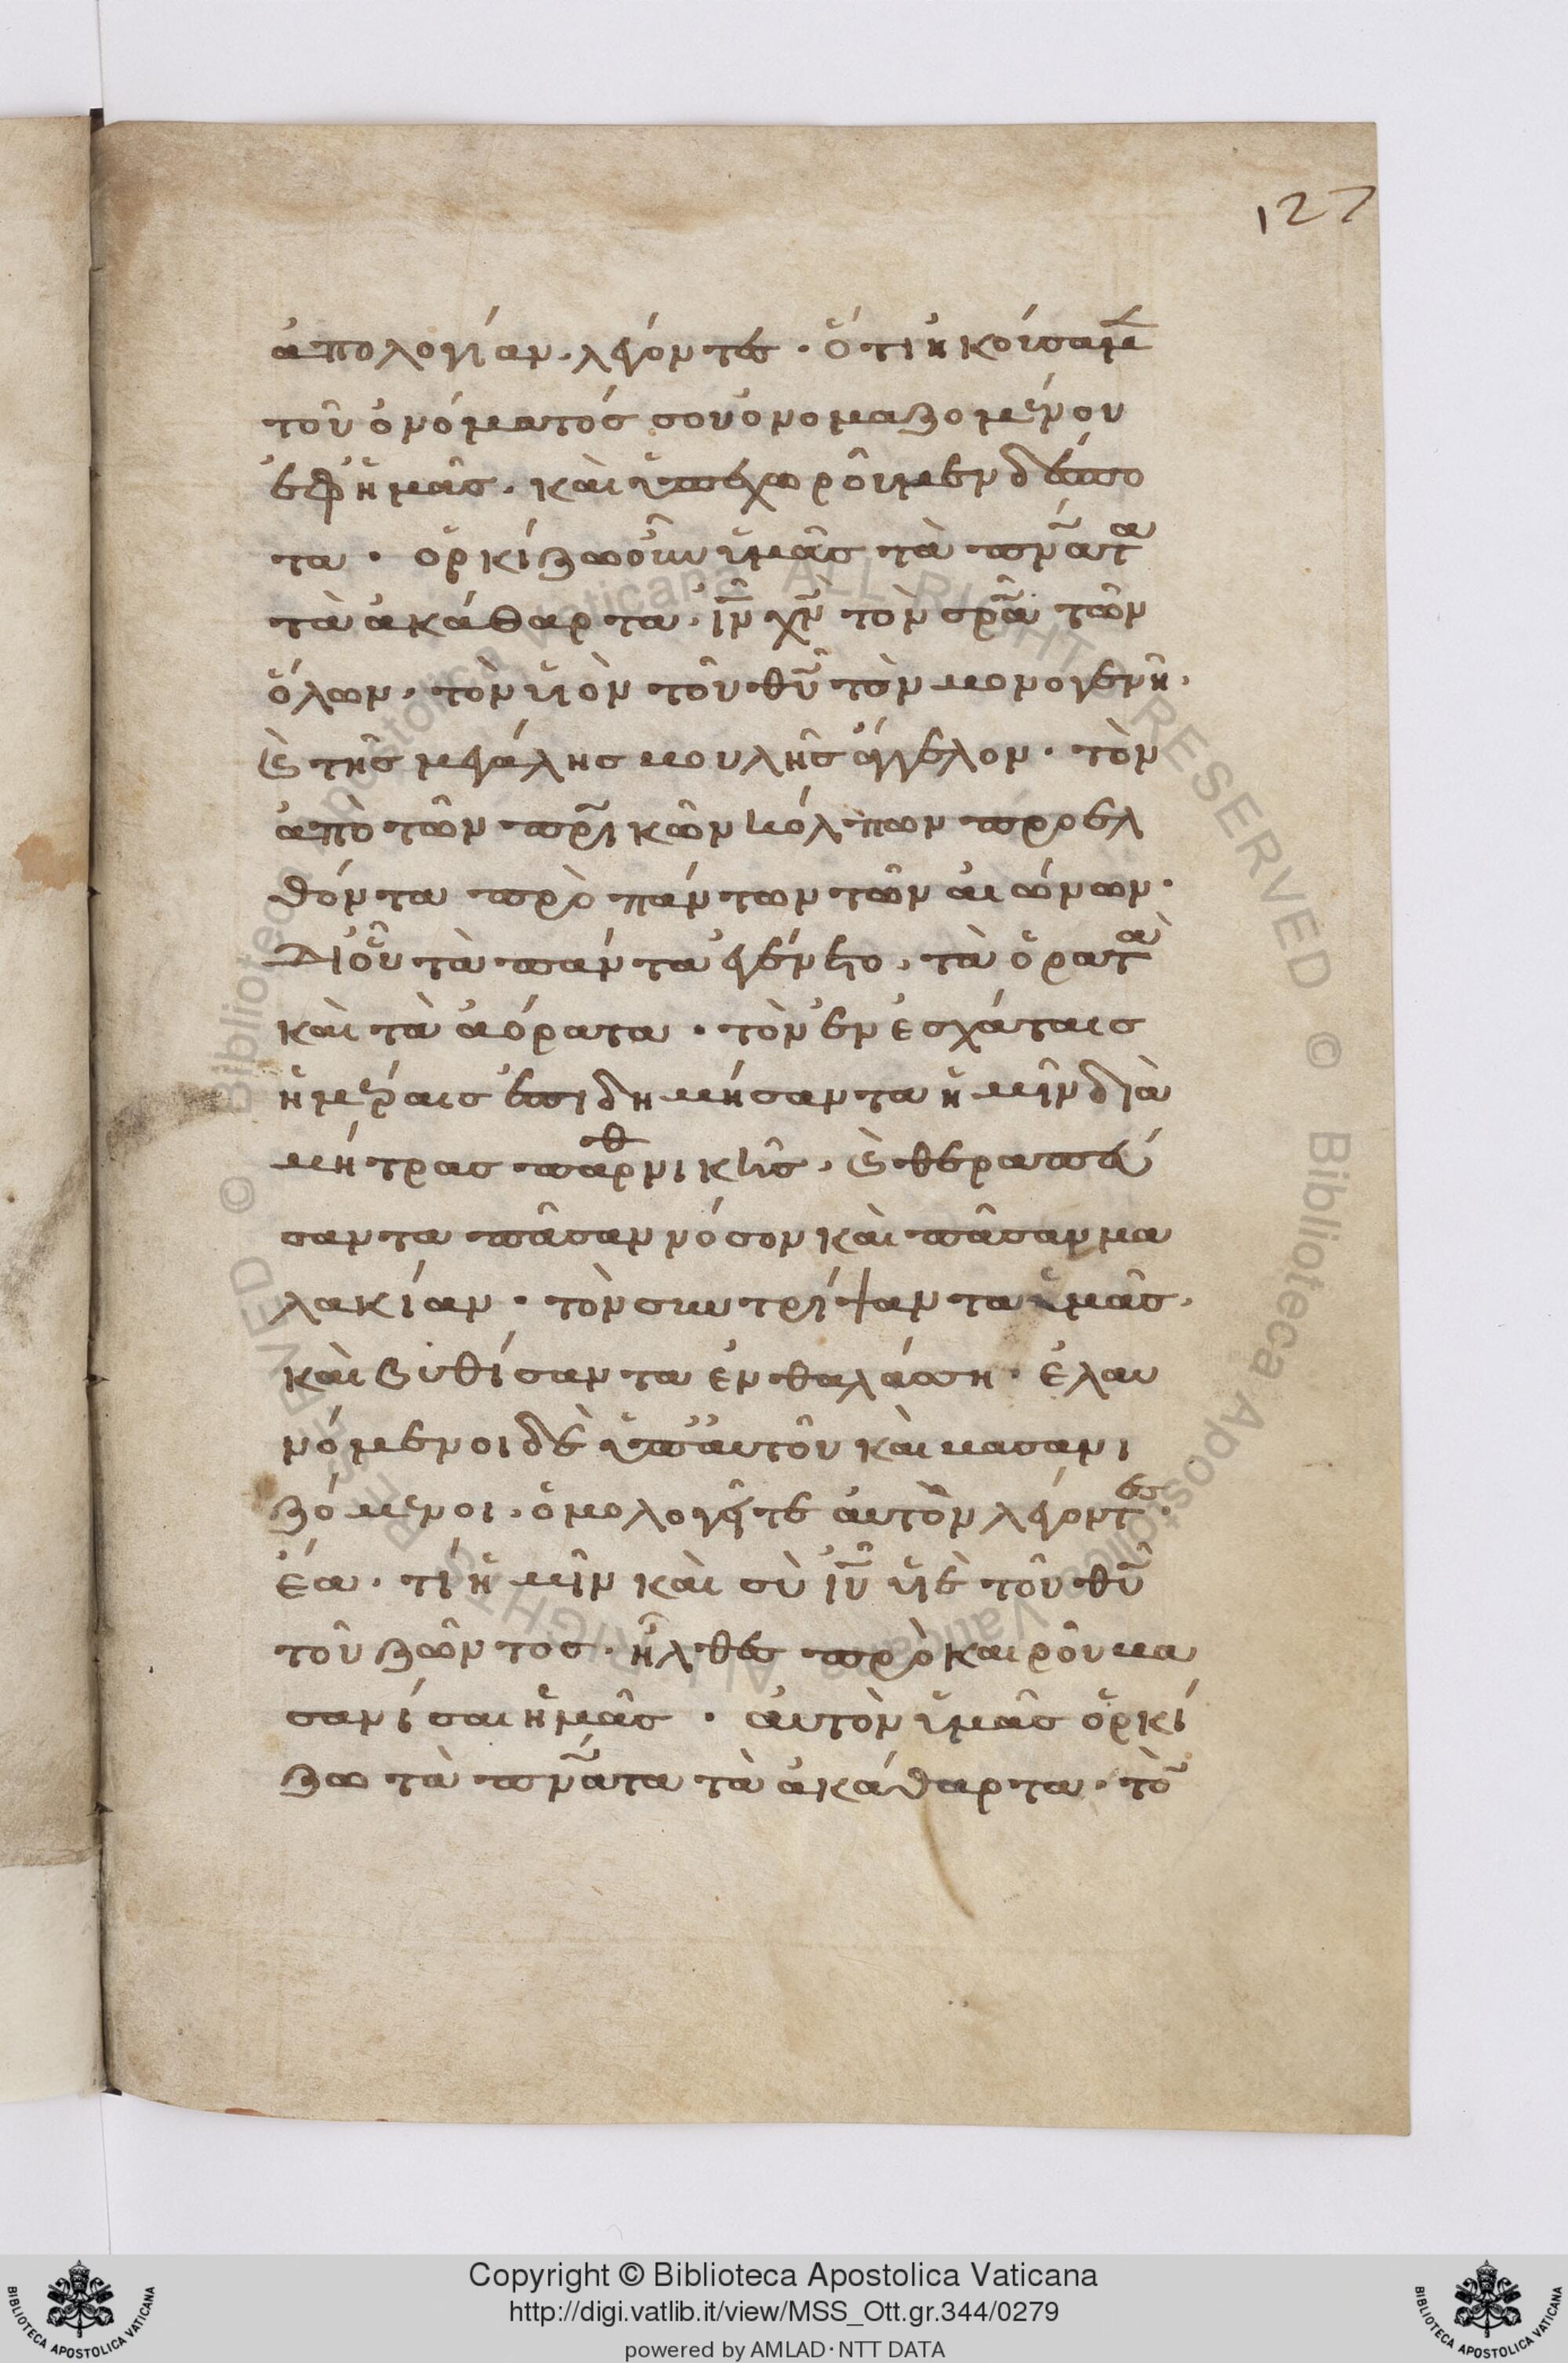 127
ἀπολογίαν. λέγοντες · ὅτι ἠκούσαμεν
τοῦ ὀνόματός σου ὀνομαζομένου
ἐφ ἡμᾶς. καὶ ὑπεχωροῦμεν δέσπο
τα · ὁρκίζω οὖν ὑμᾶς τὰ πν̅ατα
τὰ ἀκάθαρτα. ι̅ν̅ χ̅ν̅ τὸν σ̅ρ̅α̅ τῶν
ὅλων. τὸν υἱὸν τοῦ θ̅υ̅ τὸν μονογενῆ.
καὶ τῆς μεγάλης βουλῆς ἄγγελον · τὸν
ἀπὸ τῶν π̅ρ̅ικῶν κόλπων προελ
θόντα πρὸ πάντων τῶν αἰώνων ·
Δι οὗ τὰ πάντα ἐγένετο. τὰ ὁρατὰ
καὶ τὰ ἀόρατα · τὸν ἐν ἐσχάταις
ἡμέραις ἐπιδημήσαντα ἡμῖν διὰ
μήτρας παρθνικῆς. καὶ θεραπεύ
σαντα πᾶσαν νόσον καὶ πᾶσαν μα
λακίαν · τὸν συντρίψαντα ὑμᾶς.
καὶ βυθίσαντα ἐν θαλάσση · ἐλαυ
νόμενοι δὲ ὑπ αὐτοῦ καὶ βασανι
ζόμενοι. ὁμολογεῖτε αὐτὸν λέγοντες ·
ἔα · τί ἡμῖν καὶ σὺ ι̅υ̅ υἱὲ τοῦ θ̅υ̅
τοῦ ζῶντος · ἦλθες πρὸ καιροῦ βα
σανίσαι ἡμᾶς · αὐτὸν ὑμᾶς ὁρκί
ζω τὰ πν̅ατα τὰ ἀκάθαρτα · τὸν
Copyright © Biblioteca Apostolica Vaticana
http://digi.vatlib.it/view/MSS_Ott.gr.344/0279
powered by AMLAD · NTT DATA
BIBLIOTECA APOSTOLICA VATICANA
BIBLIOTECA APOSTOLICA VATICANA
© Biblioteca Apostolica Vaticana ALL RIGHTS RESERVED © Biblioteca Apostolica Vaticana ALL RIGHTS RESERVED